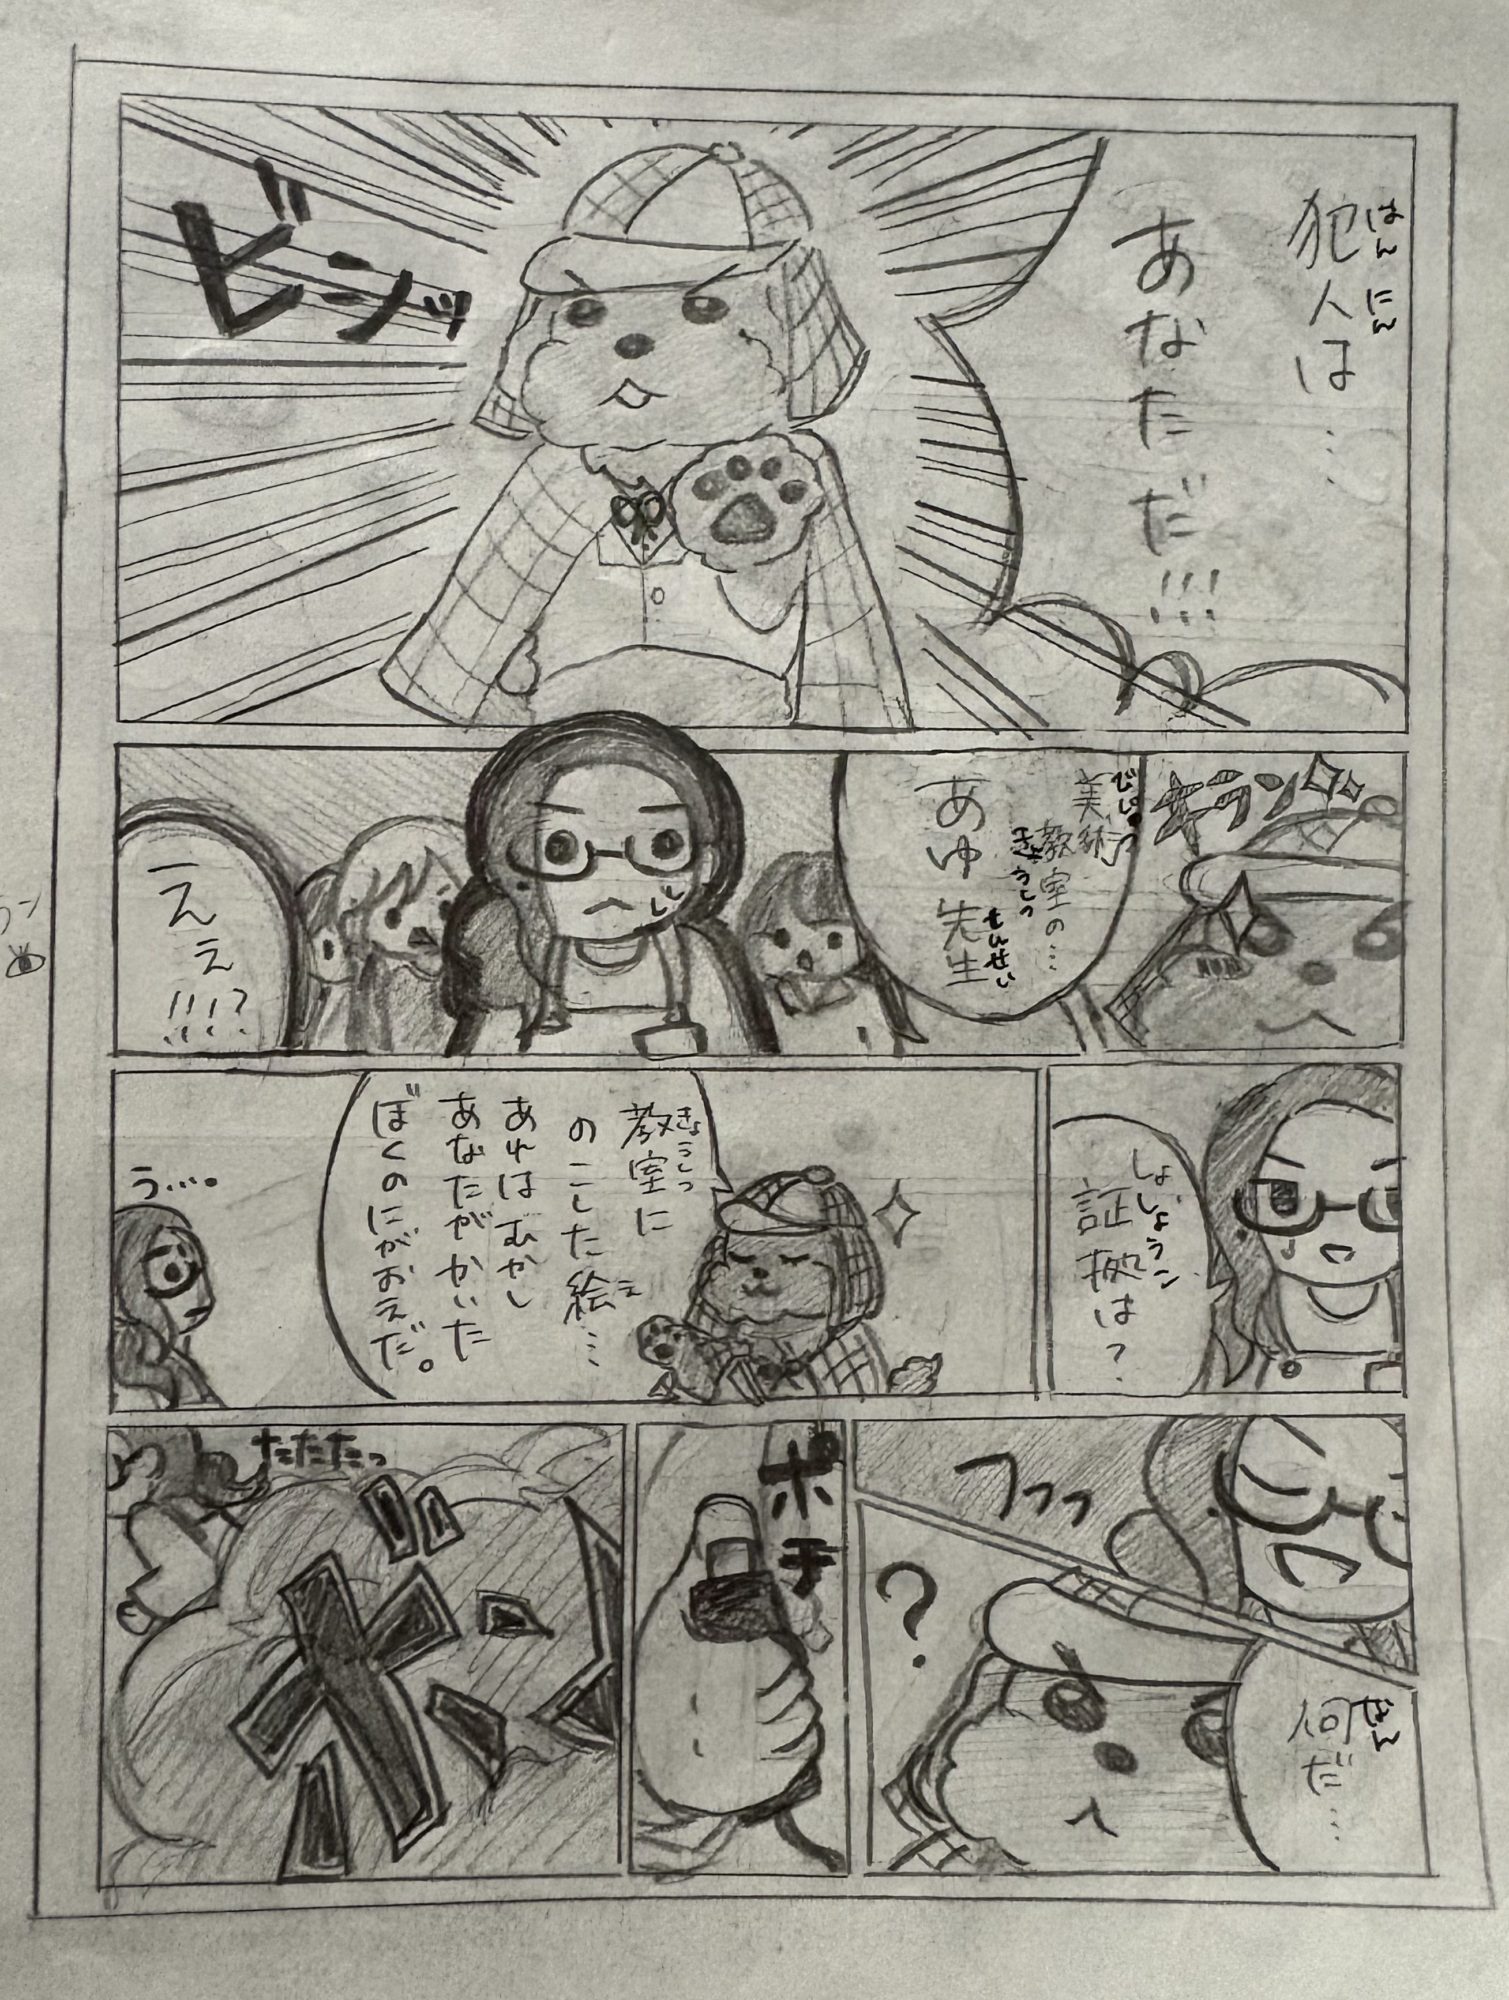 はんにん
犯人は…
あなただ!!!
ビシッ
キラン
びじゅつ
美術
きょうしつ
教室の…
せんせい
あゆ先生
ええ!!!?
しょうこ
証拠は?
きょうしつ
教室に
え
のこした絵…
あれはむかし
あなたがかいた
ぼくのにがおえだ。
う…。
フフッ
なん
何だ…
?
ポチ
たたたっ
ボン